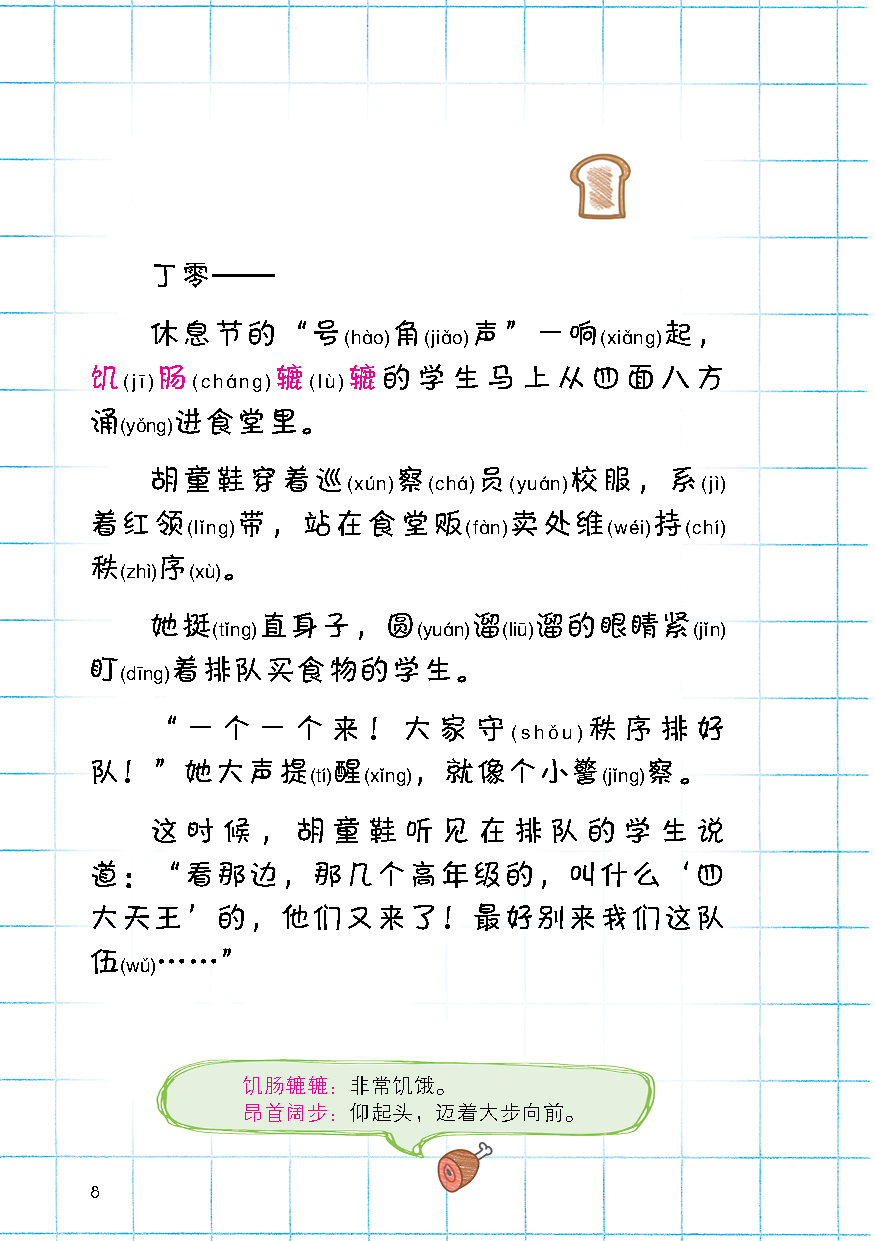 丁零——
休息节的“号(hào)角(jiǎo)声”一响(xiǎng)起，
饥(jī)肠(cháng)辘(lù)辘的学生马上从四面八方
涌(yǒng)进食堂里。
胡童鞋穿着巡(xún)察(chá)员(yuán)校服，系(jì)
着红领(lǐng)带，站在食堂贩(fàn)卖处维(wéi)持(chí)
秩(zhì)序(xù)。
她挺(tǐng)直身子，圆(yuán)溜(liū)溜的眼睛紧(jǐn)
盯(dīng)着排队买食物的学生。
“一个一个来！大家守(shǒu)秩序排好
队！”她大声提(tí)醒(xǐng)，就像个小警(jǐng)察。
这时候，胡童鞋听见在排队的学生说
道：“看那边，那几个高年级的，叫什么‘四
大天王’的，他们又来了！最好别来我们这队
伍(wǔ)……”
饥肠辘辘：非常饥饿。
昂首阔步：仰起头，迈着大步向前。
8